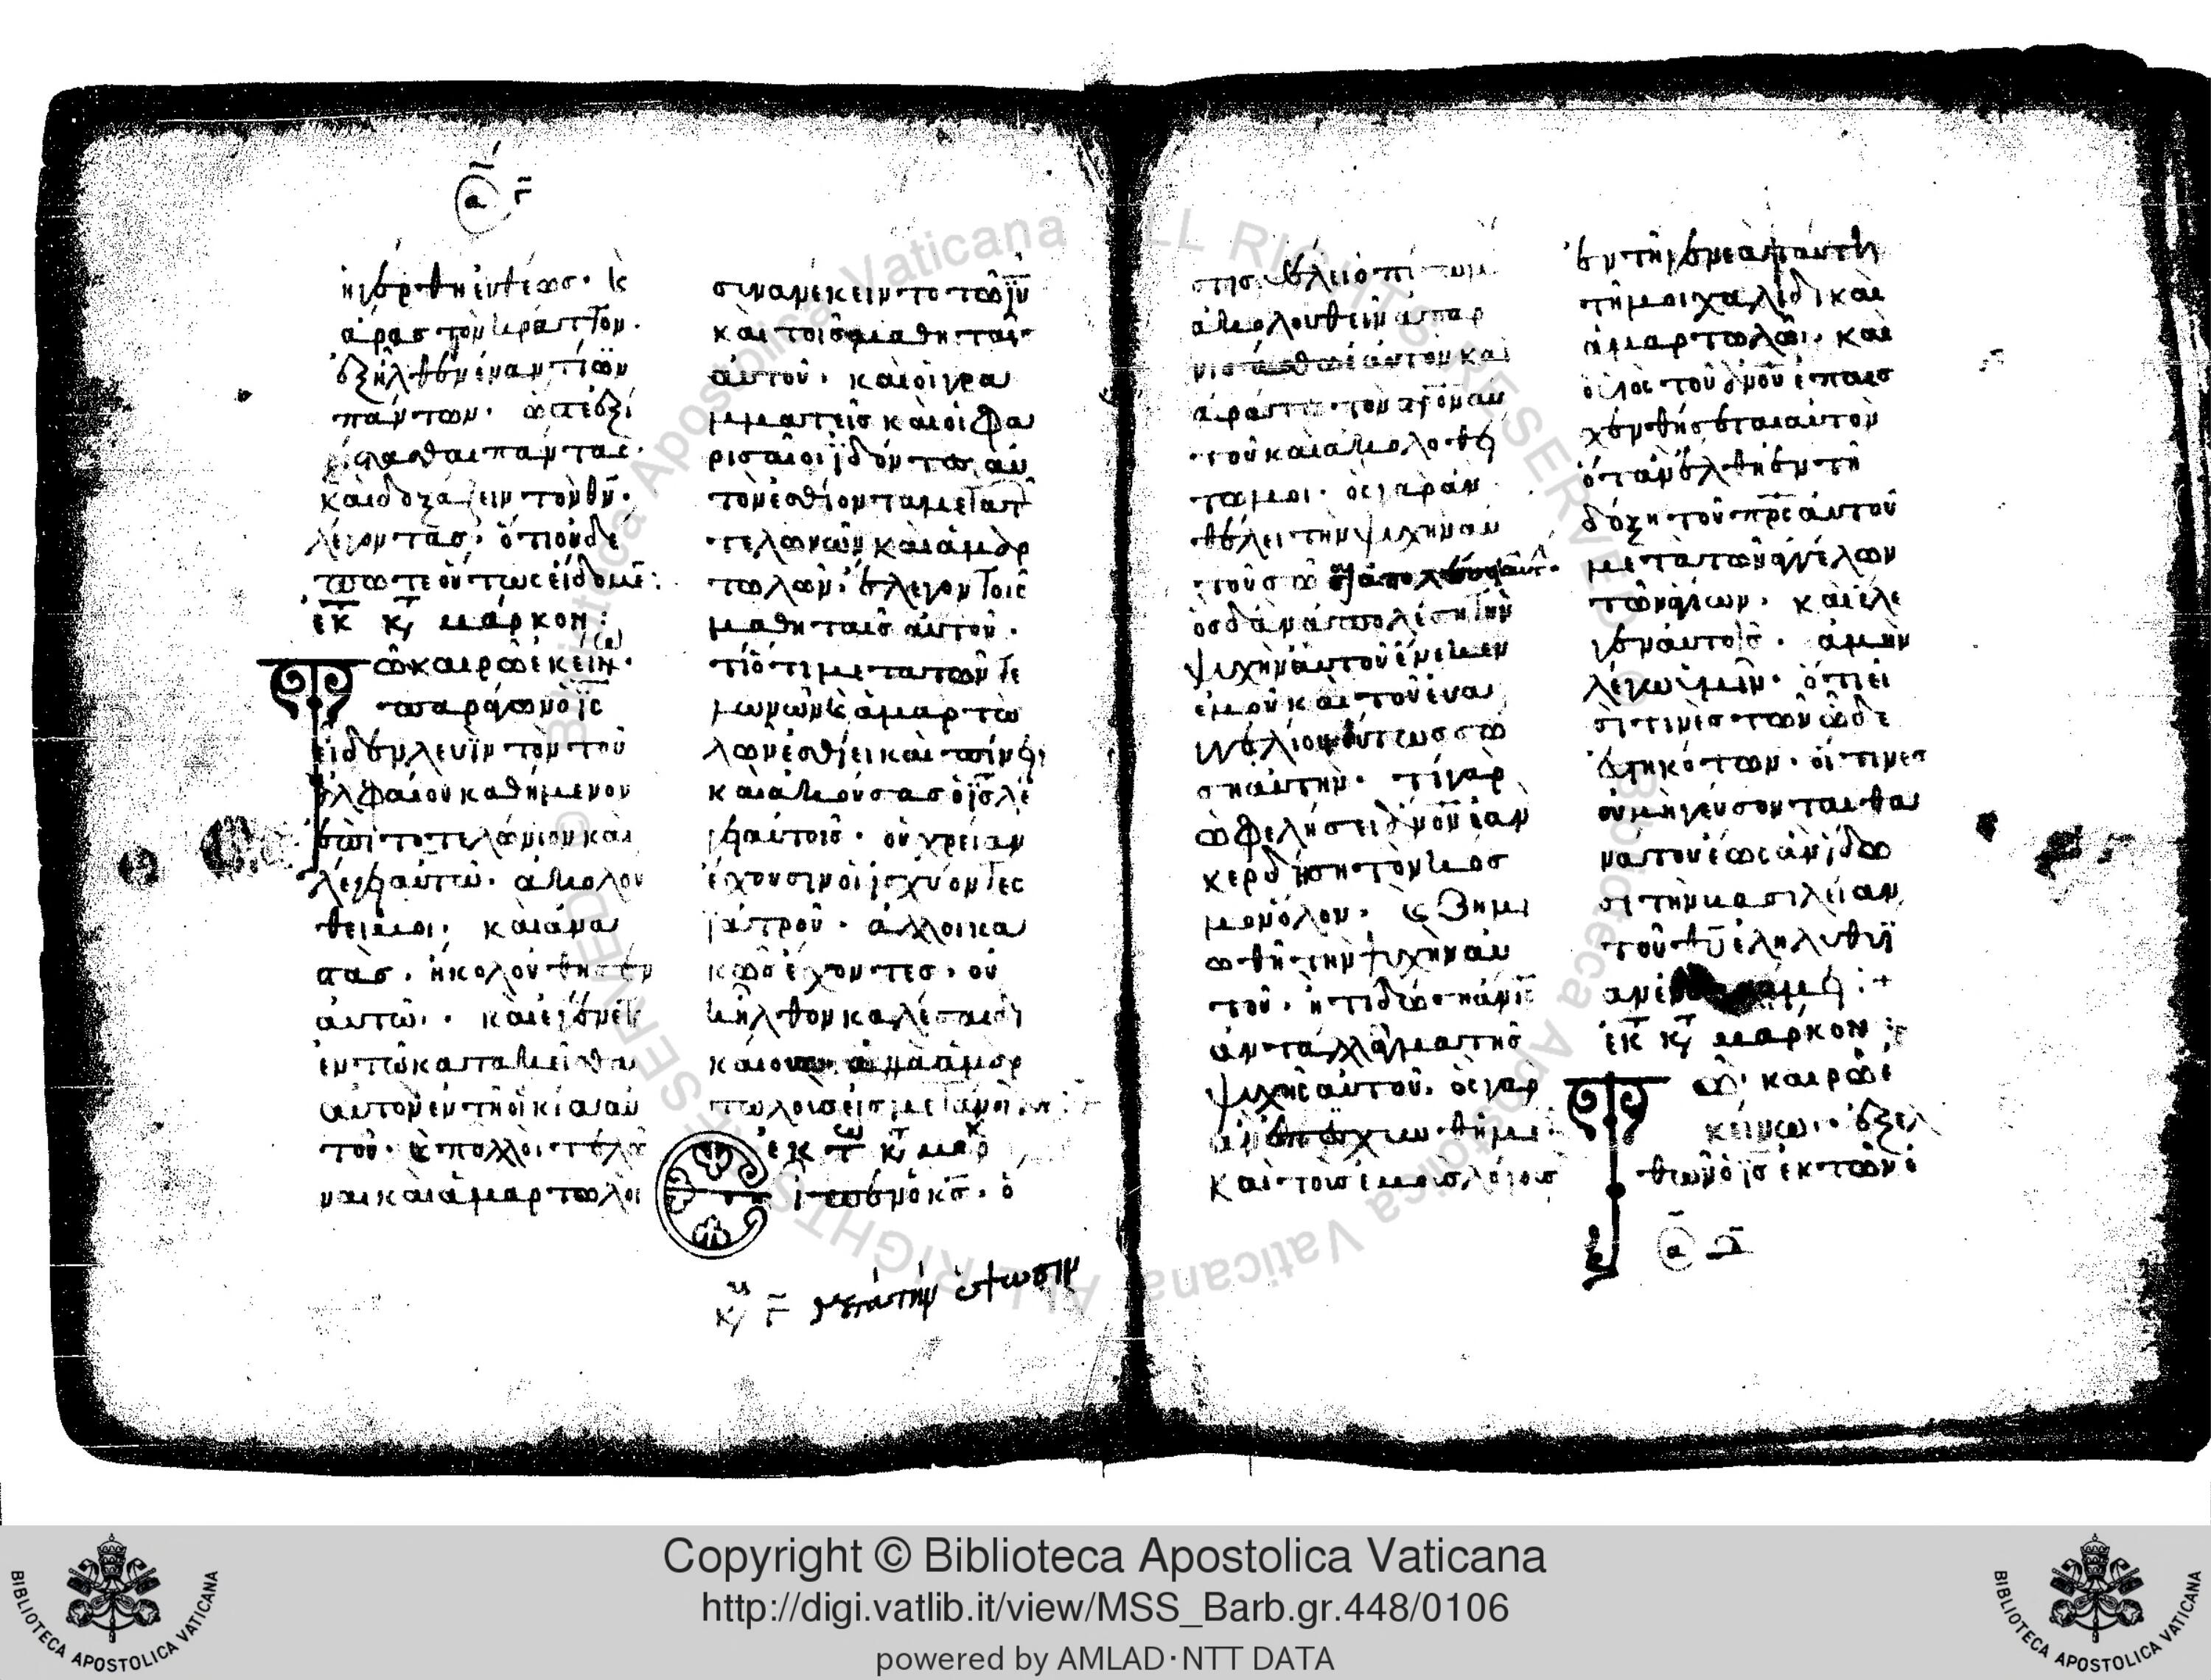 ἠγέρθη εὐθέως· κ
ἄρας τὸν κράττον·
ἐξῆλθεν ἐναντίον
πάντων· ὥστε ἐξί
στασθαι πάντας·
καὶ δοξάζειν τὸν θν·
λέγοντας· ὅτι οὐδέ
ποτε οὕτως εἴδομεν:
ἐκ τ κτ μάρκον:
Τῶ καιρῶ ἐκείν·
παράγων ὁ ις
εἶδεν λευῒν τὸν τοῦ
ἀλφαίου καθήμενον
ἐπὶ τὸ τελώνιον καὶ
λέγει αὐτῶ· ἀκολού
θει μοι· καὶ ἀνα
στας· ἠκολούθησεν
αὐτῶ· καὶ ἐγένετο
ἐν τῶ κατακεῖσθαι
αὐτὸν ἐν τῆ οἰκία αὐ
τοῦ· κ πολλοὶ τελῶ
ναι καὶ ἁμαρτωλοὶ
συνανέκειντο τῶ ιυ
καὶ τοῖς μαθηταῖς
αὐτοῦ· καὶ οἱ γρα
μματεῖς καὶ οἱ φα
ρισαῖοι ἰδόντες αὐ
τὸν ἐσθίοντα μετὰ τ
τελωνῶν καὶ ἁμαρ
τωλῶν· ἔλεγον τοῖς
μαθηταῖς αὐτοῦ·
τί ὅτι μετὰ τῶν τε
λωνῶν κ ἁμαρτω
λῶν ἐσθίει καὶ πίνει·
καὶ ἀκούσας ὁ ις λέ
γει αὐτοῖς· οὐ χρείαν
ἔχουσιν οἱ ἰσχύοντες
ἰατροῦ· ἀλλ οἱ κα
κῶς ἔχοντες· οὐ
κ ἦλθον καλέσαι δι
καίους ἀλλὰ ἁμαρ
τωλοὺς εἰς μετάνοιαν
ἐκ τ κτ μαρκ
Εἶπεν ὁ κς· ὁ
στης θέλει ὀπίσω μου
ἀκολουθεῖν ἀπαρ
νισάσθω ἑαυτὸν καὶ
ἀράτω τὸν στρον αὐ
τοῦ καὶ ἀκολουθεί
τω μοι· ὃς γὰρ ἂν
θέλει τὴν ψυχὴν αὐ
τοῦ σῶσαι ἀπολέσει αὐτ·
ὃς δ ἂν ἀπολέσῃ τὴν
ψυχὴν αὐτοῦ ἕνεκεν
ἐμοῦ καὶ τοῦ εὐα
γγελίου οὗτος σώ
σῃ αὐτήν· τί γὰρ
ὠφελήσει ανον ἐὰν
κερδήσῃ τὸν κόσ
μον ὅλον· κ ζημι
ωθῆ τὴν ψυχὴν αὐ
τοῦ· ἢ τί δώσῃ ανος
ἀντάλλαγμα τῆς
ψυχῆς αὐτοῦ· ὃς γὰρ
ἂν ἐπαισχυνθῆ με
καὶ τοὺς ἐμοὺς λόγους
ἐν τῆ γενεᾶ ταύτη
τῆ μοιχαλίδι καὶ
ἁμαρτωλῶ· καὶ
ὁ υἱὸς τοῦ ανου ἐπαισ
χυνθήσεται αὐτὸν
ὅταν ἔλθῃ ἐν τῆ
δόξῃ τοῦ πρς αὐτοῦ
μετὰ τῶν ἀγγέλων
τῶν ἁγίων· καὶ ἔλε
γεν αὐτοῖς· ἀμὴν
λέγω ὑμῖν· ὅτι εἰ
σί τινες τῶν ὧδε
ἑστηκότων· οἵτινες
οὐ μὴ γεύσονται θα
νάτου ἕως ἂν ἴδω
σι τὴν βασιλείαν
τοῦ θυ ἐληλυθυῖ
αν ἐν δυνάμει:+
ἐκ τ κτ μάρκον:
Τῶ καιρῶ ἐ
κείνω· ἐξελ
θὼν ὁ ις ἐκ τῶν ὁ